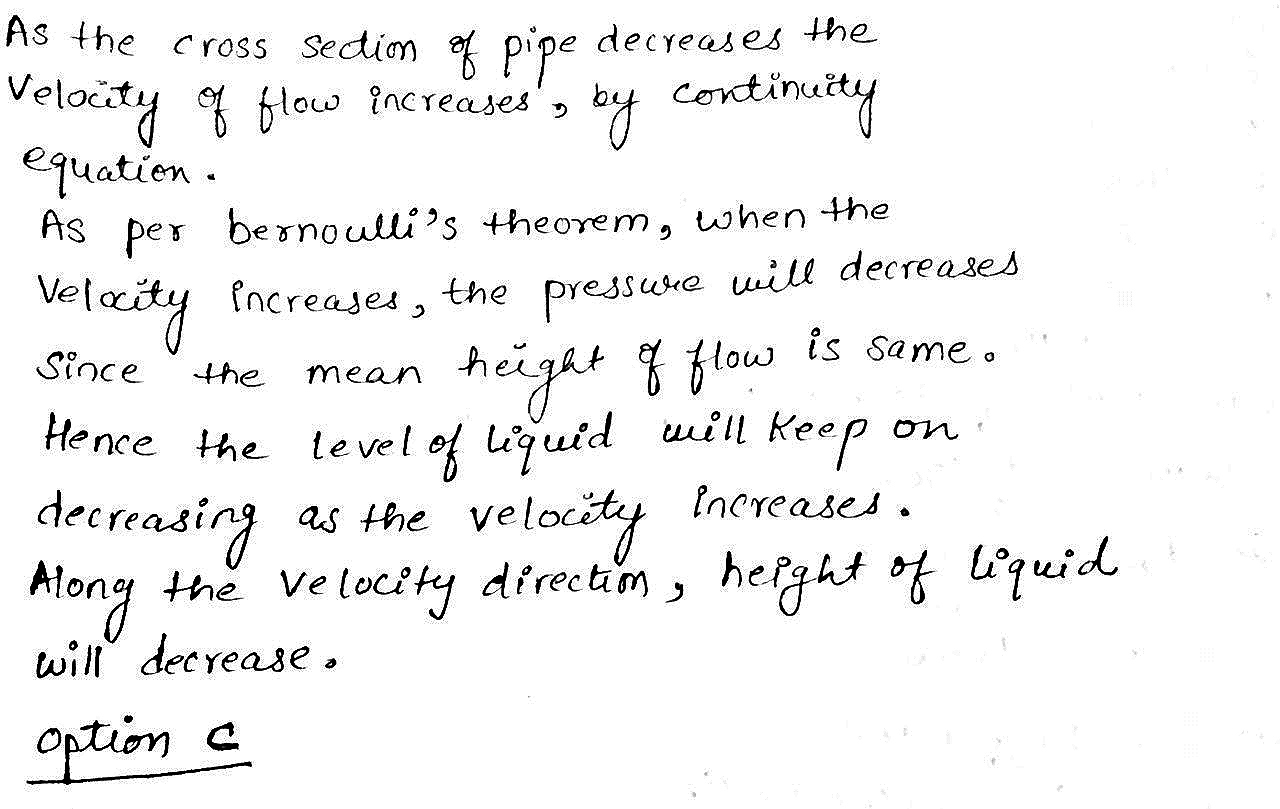 As the cross section of pipe decreases the
Velocity of flow increases, by continuity
equation.
As per bernoulli's theorem, when the
Velocity increases, the pressure will decreases
Since the mean height of flow is same.
Hence the level of liquid will keep on
decreasing as the velocity increases.
Along the velocity direction, height of liquid
will decrease.
option C